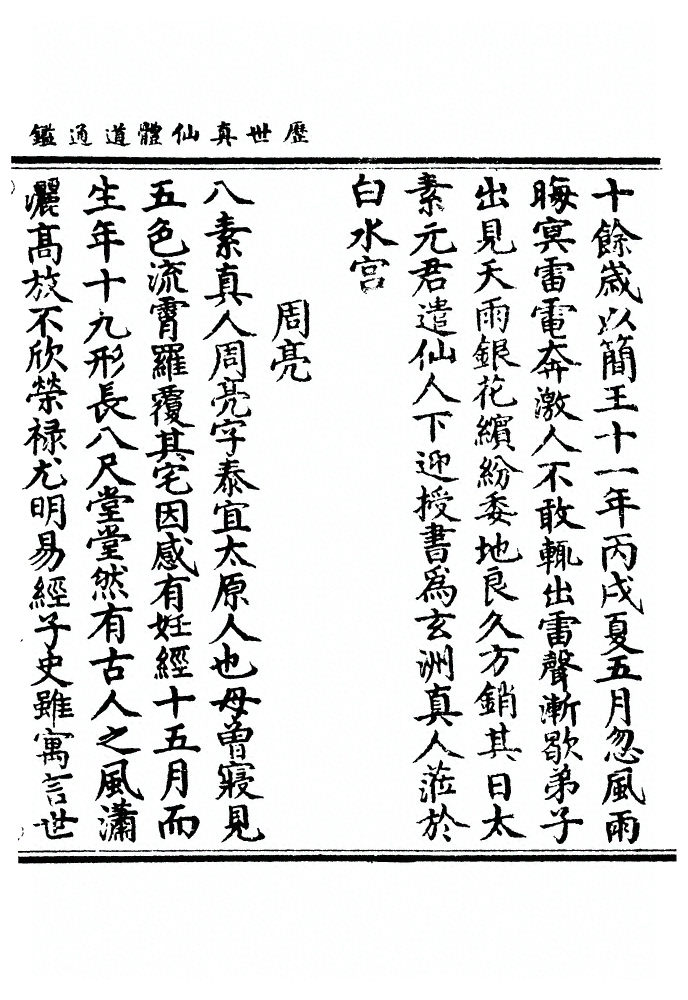 歷世真仙體道通鑑
十餘歲以簡王十一年丙戌夏五月忽風雨
晦冥雷電奔激人不敢輒出雷聲漸歇弟子
出見天雨銀花繽紛委地良久方銷其日太
素元君遣仙人下迎授書為玄洲真人蒞於
白水宮
周亮
八素真人周亮字泰宜太原人也母曾寢見
五色流霄羅覆其宅因感有妊經十五月而
生年十九形長八尺堂堂然有古人之風瀟
灑高放不欣榮祿尤明易經子史雖寓言世